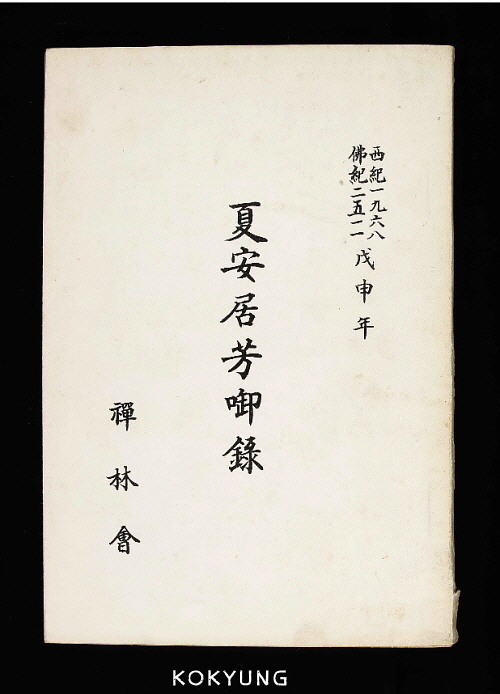 西紀一九六八
佛紀二五一一
戊申年
夏安居芳啣錄
禪林會
KOKYUNG